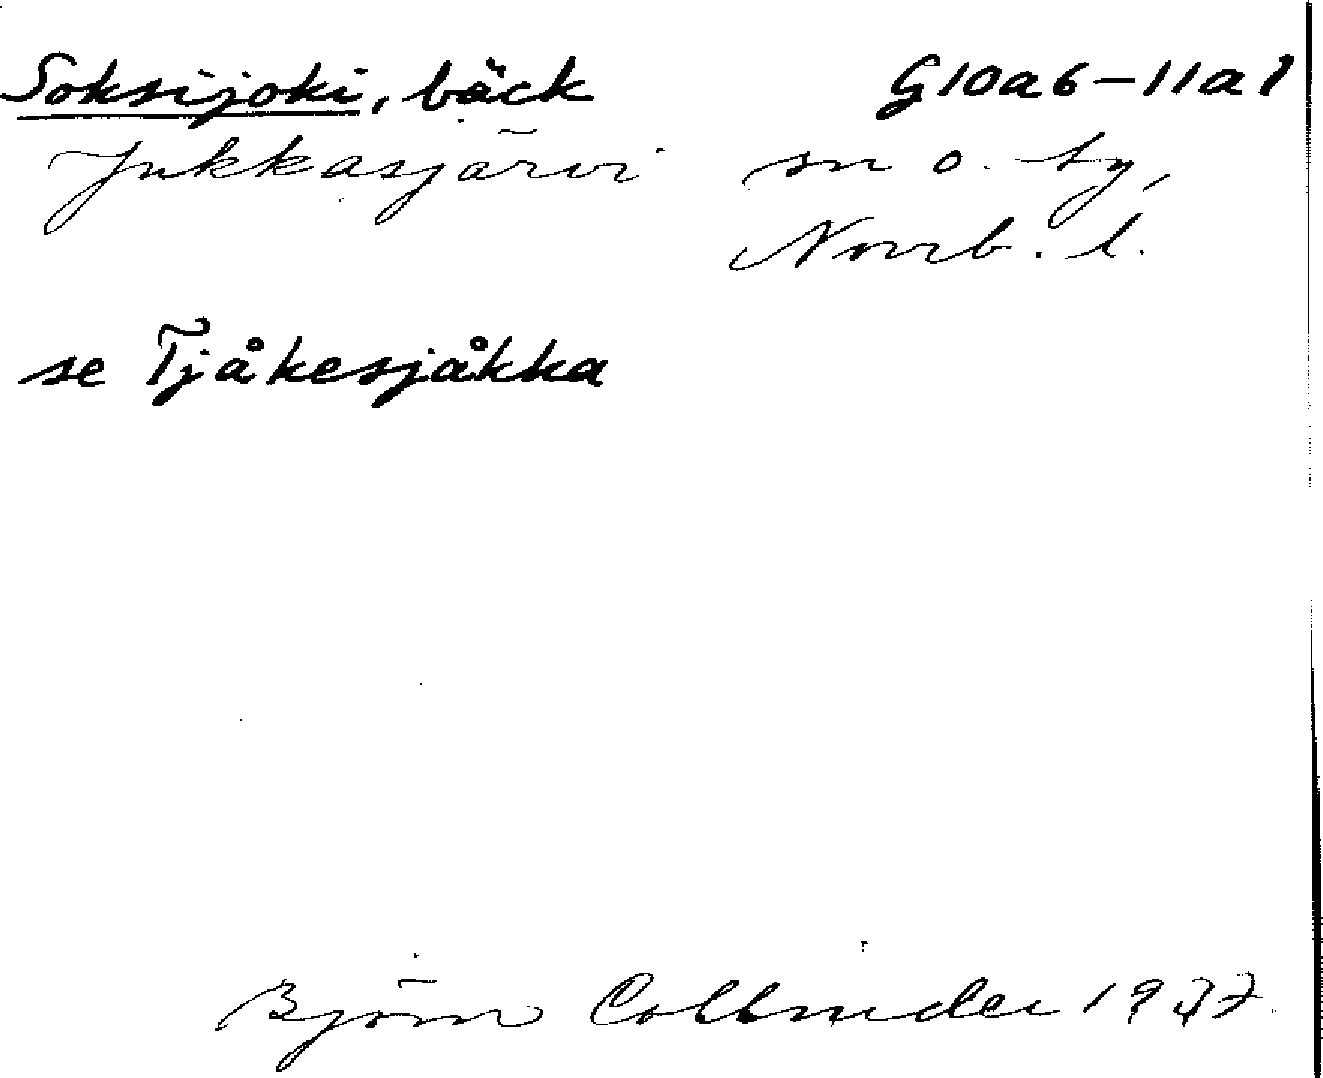 Soksijoki, bäck G10a6-11a1
Jukkasjärvi sn o. tg,
Norrb. l.
se Tjåkesjåkka
Björn Collinder